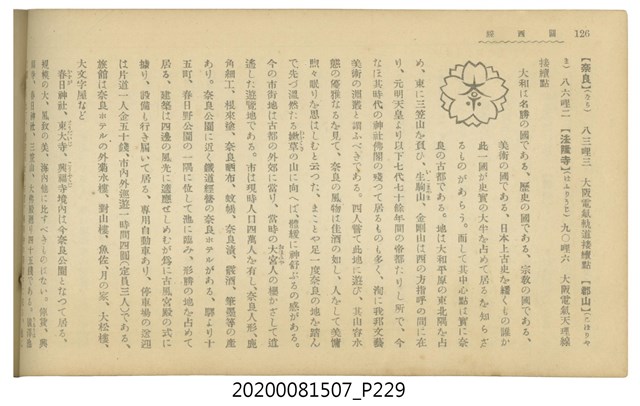 126
關西線
【奈良】(なら) 八三哩三 大阪電氣軌道接續點 【郡山】(こほりや
ま) 八六哩二 【法隆寺】(ほふりうじ) 九〇哩六 大阪電氣天理線
接續點
大和は名勝の國である、歷史の國である、宗敎の國である、
美術の國である。日本上古史を繙くもの誰か
此一國が史實の大半を占めて居るを知らざ
るものがあらう。而して其中心點は實に奈
良の古都である。地は大和平原の東北隅を占
め、東に三笠山を負ひ、生駒山、金剛山は西の方指呼の間に在
り、元明天皇より以下七代七十餘年間の帝都たりし所で、今
なほ其時代の神社佛閣の殘つて居るものも多く、洵に我邦文藝
美術の淵叢と謂ふべきである。四人嘗て此地に遊び、其山容水
態の優雅なるを見て、奈良の風物は佳酒の如し、人をして美慵
煦々眠りを思はしむと云つた、まことや足一度奈良の地を踏ん
で先づ溫然たる嫩草の山に向へば、體軀に神舒ぶるの感がある。
今の市街地は古都の外郊に當り、當時の大宮人の櫻かざして逍
遙した遊覽地である。市は現時人口四萬人を有し、奈良人形、鹿
角細工、根來塗、奈良晒布、蚊帳、奈良漬、霰酒、筆墨等の產
あり。奈良公園に近く鐵道經營の奈良ホテルがある、驛より十
五町、春日野公園の一隅に位して池に臨み、形勝の地を占めて
居る、建築は四邊の風光に適應せしめむが爲に古風宮殿の式に
據り、設備も行き屆いて居る、專用自動車あり、停車場の送迎
は片道一人金五十錢、市內外巡遊一時間四圓(定員三人)である、
旅館は奈良ホテルの外菊水樓、對山樓、魚佐、月の家、大松樓、
大文字屋など
春日神社、東大寺、興福寺境內は今奈良公園となつて居る、
規模の大、風致の美、海內他に比すべきものはない。
20200081507_P229